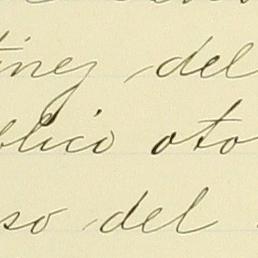 tinez del
blico oto
so del